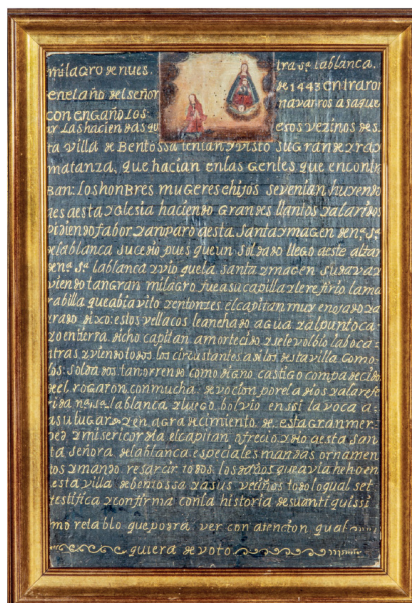 milagro de nues. tra sª lablanca.
enelaño del señor de 1443 entraron
con engaño los navarros a saque
ar las haciendas que esos vezinos de es
ta villa de Bentossa tenian y visto su gran de y raz
matanza, que hacian enlas gentes que encontra
ban: los honbres mugeres e hijos se venian huyendo
des aesta yglesia haciendo grandes llantos y alaridos
pidiendo fabor y anparo aesta santa ymagen de nª sª
delablanca sucedio pues que un soldado llego aeste altar
de nª sª lablanca y vio que la santa ymagen sudava y
viendo tan gran milagro fue a su capilla y le refirio la ma
rabilla que abia vito y entonzes el capitan muy enojado y a
rado dixo: estos vellacos le an echado agua y al punto ca
yo en tierra dicho capitan amortecido y se le volbio la boca
tras y viendo todos los circustantes asi los desta villa como
los soldados tan orrendo como digno castigo compadecidos
de el rogaron con mucha devocion por el a dios y a la refe
rida nª sª de la blanca y luego bolvio en si y la voca a
a su lugar y en agradecimiento de esta gran mer
ned y misericordia el capitan ofrecio y dio a esta san
ta señora de la blanca especiales mandas ornamen
tos y mando resarcir todos los daños que avia hecho en
esta villa de bentossa y a sus vezinos todo lo qual se t
testifica y confirma con la historia de su antiquissi
mo retablo que podra ver con atencion qual
quiera devoto